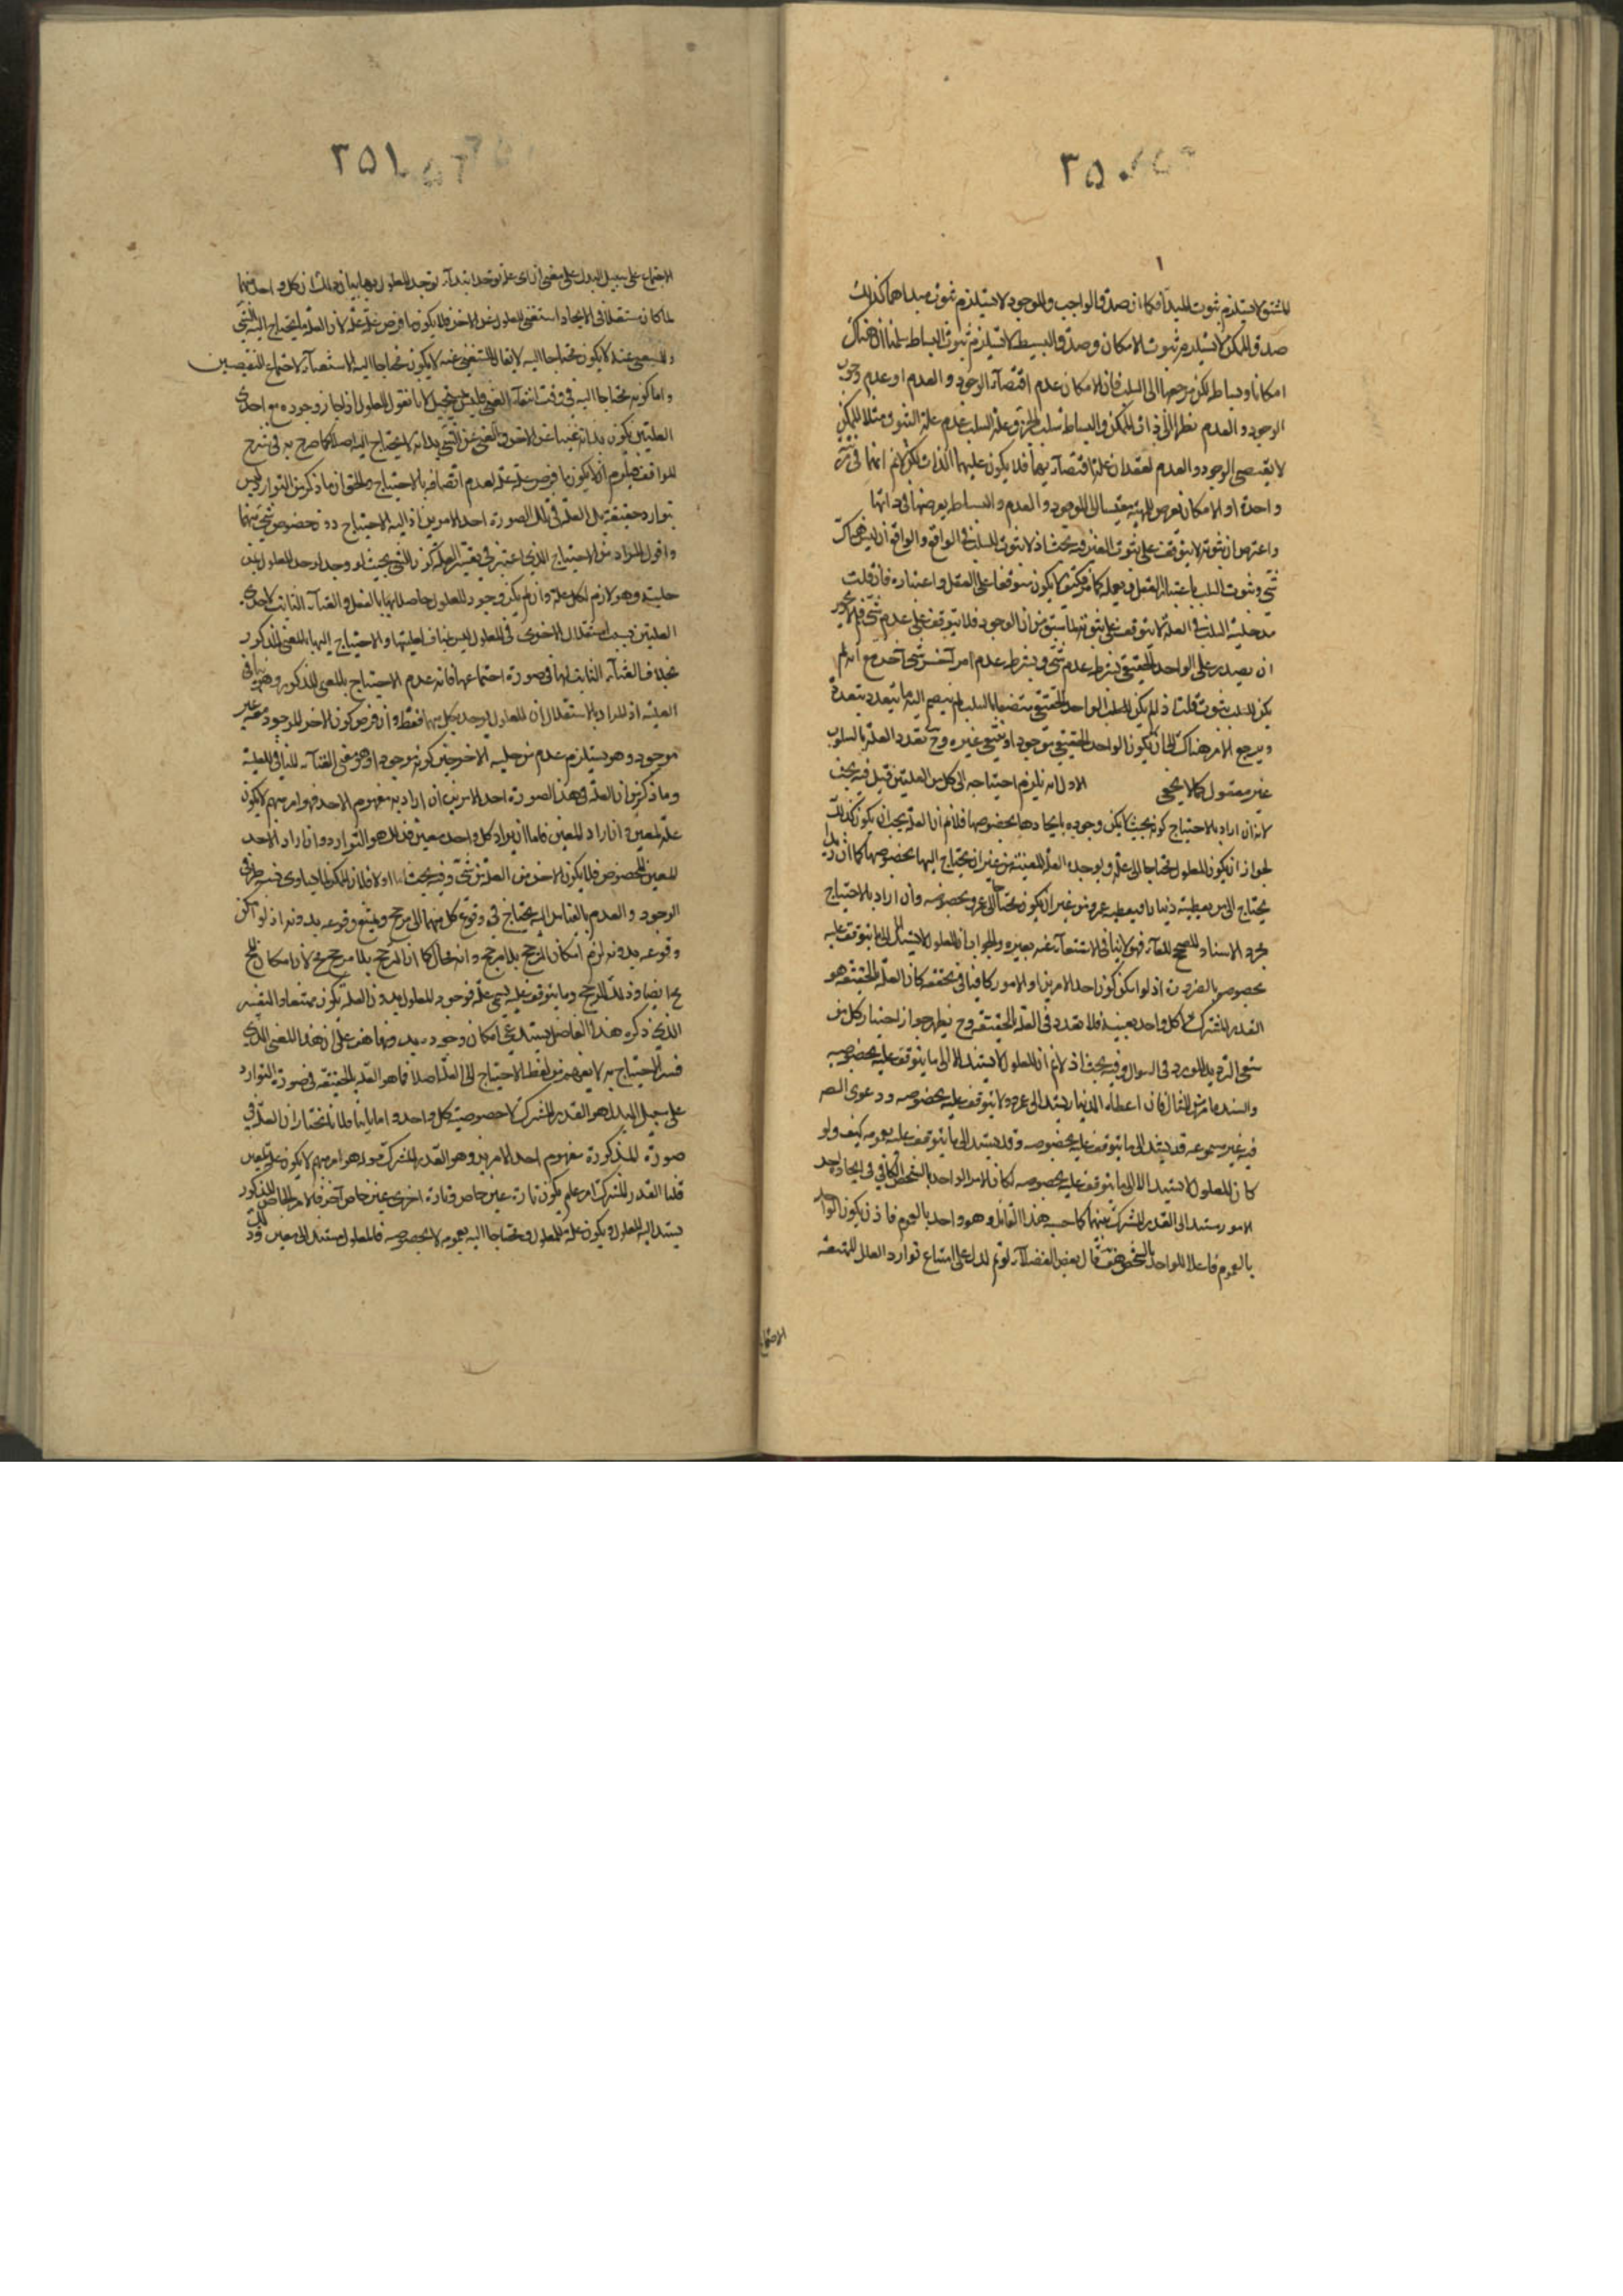 ٣٥٠
المشتق لا يستلزم ثبوت المبدأ فكما ان صدق الواجب والموجود لا يستلزم ثبوت مبداهما كذلك
صدق الممكن لا يستلزم ثبوت الامكان وصدق البسيط لا يستلزم ثبوت البساطة سلمنا ان هناك
امكانا وبساطة لكن مرجعهما الى السلب فان الامكان عدم اقتضاء الوجود و العدم او عدم وجوب
الوجود و العدم نظرا الى ذات الممكن و البساطة سلب و علة السلب عدم علة الثبوت مثلا الممكن
لا يقتضى الوجود و العدم لفقدان علة اقتضائه فلا يكون عليهما الذات لكن انهما فى مرتبة
واحدة او الامكان يعرض للمهية مقيسا الى الوجود و العدم و البساطة يعرضها فى ذاتها
واعترض ان ثبوته لا يتوقف على ثبوت الغير فيه بحث اذ لا ثبوت للسلب فى الواقع والواقع ان ليس هناك
شئ وثبوت السلب باعتبار العقل يكون متوقفا على العقل و اعتباره فان قلت
مدخلية السلب فى العلة لا يتوقف على ثبوته لما سبق من ان الوجود قد يتوقف على عدم شئ
ان يصدر على الواحد الحقيقى بشرط عدم شئ و بشرط عدم امر آخر شئ آخر مع انه لم
يكن للسلب ثبوت قلت اذ لم يكن للسلب الواحد الحقيقى متصفا بالسلب لم ينضم اليه ما يتعدد بتعدده
ويرجع الامر هناك الى ان يكون الواحد الحقيقى موجودا و ينتفى غيره وح تعدد العلة بالسلوب
غير معقول كما لا يخفى الاول انه يلزم احتياجه الى كل من العلتين قيل فيه بحث
لانه ان اراد بالاحتياج كونه بحيث لا يمكن وجوده بايجادها بخصوصها فلا نم ان العلة يجب ان يكون كذلك
لجواز ان يكون المعلول محتاجا الى علة و يوجده العلة المعينة من غير ان يحتاج اليها بخصوصها كما ان زيدا
يحتاج الى من يعطيه دينارا فيعطيه عمرو من غير ان يكون محتاجا الى عمرو بخصوصه وان اراد بالاحتياج
مجرد الاسناد المصحح للفاء فهو لا ينافى الاستغناء عنه بغيره والجواب ان المعلول لا يستند الا الى ما يتوقف عليه
بخصوصه بالضرورة اذ لو امكن كون احد الامرين او الامور كافيا فى تحققه كان العلة الحقيقة هو
القدر المشترك لا كل واحد بعينه فلا تعدد فى العلة الحقيقة وح يظهر جواز اختيار كل من
شقى الترديد المورد فى السوال وفيه بحث اذ لا نم ان المعلول لا يستند الا الى ما يتوقف عليه بخصوصه
والسند ما مر من المثال فان اعطاء الدينار يستند الى عمرو ولا يتوقف عليه بخصوصه و دعوى الضر
فيه غير مسموعة قد يستند الى ما يتوقف عليه بخصوصه وقد يستند الى ما يتوقف عليه بعمومه كيف ولو
كان المعلول لا يستند الا الى ما يتوقف عليه بخصوصه لكان الامر الواحد بالشخص الكافى فى ايجاد احد
الامور مستندا الى القدر المشترك بينهما كما حسبه هذا القائل وهو واحد بالعموم فاذن يكون الواحد
بالعموم فاعلا للواحد بالشخص هف قال بعض الفضلاء لو تم لدل على امتناع توارد العلل الممتنعة
الاجتماع
٣٥١
الاجتماع على سبيل البدل على معنى ان اى علة توجد ابتداء توجد المعلول بها بيان ذلك ان كل واحد منهما
لما كان مستقلا فى الايجاد استغنى المعلول عن الاخر فلا يكون ما فرض علة علة لان العلة ما يحتاج اليه الشئ
والمستغنى عنه لا يكون محتاجا اليه لا يقال المستغنى عنه لا يكون محتاجا اليه لاجتماع النقيضين
واما كونه محتاجا اليه فى وقت انتفاء الغنى فليس بمستحيل لانا نقول المعلول اذا جاز وجوده مع احدى
العلتين يكون بذاته غنيا عن الاخرى والغنى عن الشئ بذاته لا يحتاج اليه اصلا كما صرح به فى شرح
المواقف فيلزم ان لا يكون ما فرض علة علة لعدم اتصافه بالاحتياج والحق ان ما ذكر من التوارد ليس
بتوارد حقيقة بل العلة فى تلك الصورة احد الامرين اذ اليه الاحتياج دون خصوص شئ منهما
واقول المراد من الاحتياج الذى اعتبر فى تفسير العلة كون الشئ بحيث لو وجد لوجد المعلول
وهو لازم لكل علة وان لم يكن وجود المعلول حاصلا بها بالفعل والغناء الثابت لاحدى
العلتين بسبب استقلال الاخرى فى المعلول ليس بمناف لعليتها والاحتياج اليها بالمعنى المذكور
بخلاف الغناء الثابت لها فى صورة اجتماعها فانه عدم الاحتياج بالمعنى المذكور وهو ينافى
العلية اذ المراد بالاستقلال ان المعلول يوجد بكل منهما فقط وان فرض كون الاخر الموجود معه غير
موجود وهو يستلزم عدم مدخلية الاخر حين كونه موجودا وهو معنى الغناء المنافى للعلية
وما ذكر من ان العلة فى هذه الصورة احد الامرين ان اراد به مفهوم الاحد فهو امر مبهم لا يكون
علة لمعين وان اراد المعين فاما ان يراد كل واحد معين فذلك هو التوارد وان اراد الاحد
المعين المخصوص فلا يكون الاخر من العلة من شئ وفيه بحث اما اولا فلان الممكن لما تساوى طرفى
الوجود والعدم بالقياس اليه يحتاج فى وقوع كل منهما الى مرجح ويمتنع وقوعه بدونه اذ لو امكن
وقوعه بدونه لزم امكان الترجح بلا مرجح وانه محال كما ان الترجح بلا مرجح مح لان امكان المح
مح ايضا وذلك المرجح وما يتوقف عليه يسمى علة فوجود المعلول بدون العلة يكون ممتنعا والتفسير
الذى ذكره هذا الفاضل يستدعى امكان وجوده بدونها هف على ان هذا المعنى الذى
فسر الاحتياج به لا يفهم من لفظ الاحتياج الى العلة اصلا فما هو العلة الحقيقة فى صورة التوارد
على سبيل البدل هو القدر المشترك لا خصوصية كل واحد واما ثانيا فلانا نختار ان العلة فى
صورة المذكورة مفهوم احد الامرين وهو القدر المشترك قوله هو امر مبهم لا يكون علة لمعين
قلنا القدر المشترك امر عام يكون تارة عين خاص وتارة اخرى عين خاص آخر فالامر الخاص المذكور
يستند اليه المعلول ويكون علة للمعلول ومحتاجا اليه بعمومه لا بخصوصه فالمعلول مستند الى معين